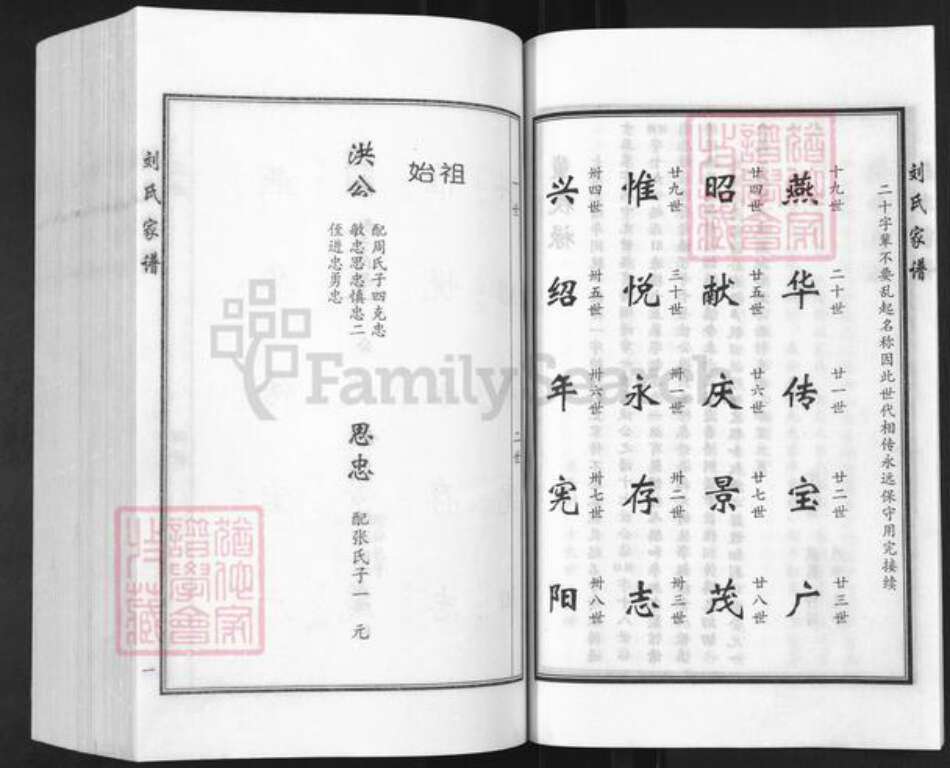 刘氏家谱
二十字辈不要乱起名称因此世代相传永远保守用完接续
十九世 二十世 廿一世 廿二世 廿三世
燕华传宝广
廿四世 廿五世 廿六世 廿七世 廿八世
昭献庆景茂
廿九世 三十世 卅一世 卅二世 卅三世
惟悦永存志
卅四世 卅五世 卅六世 卅七世 卅八世
兴绍年宪阳
一世 二世
始祖
洪公
配周氏子四克忠
敏忠思忠慎忠二
侄进忠勇忠
思忠
配张氏子一 元
刘氏家谱
一
FamilySearch